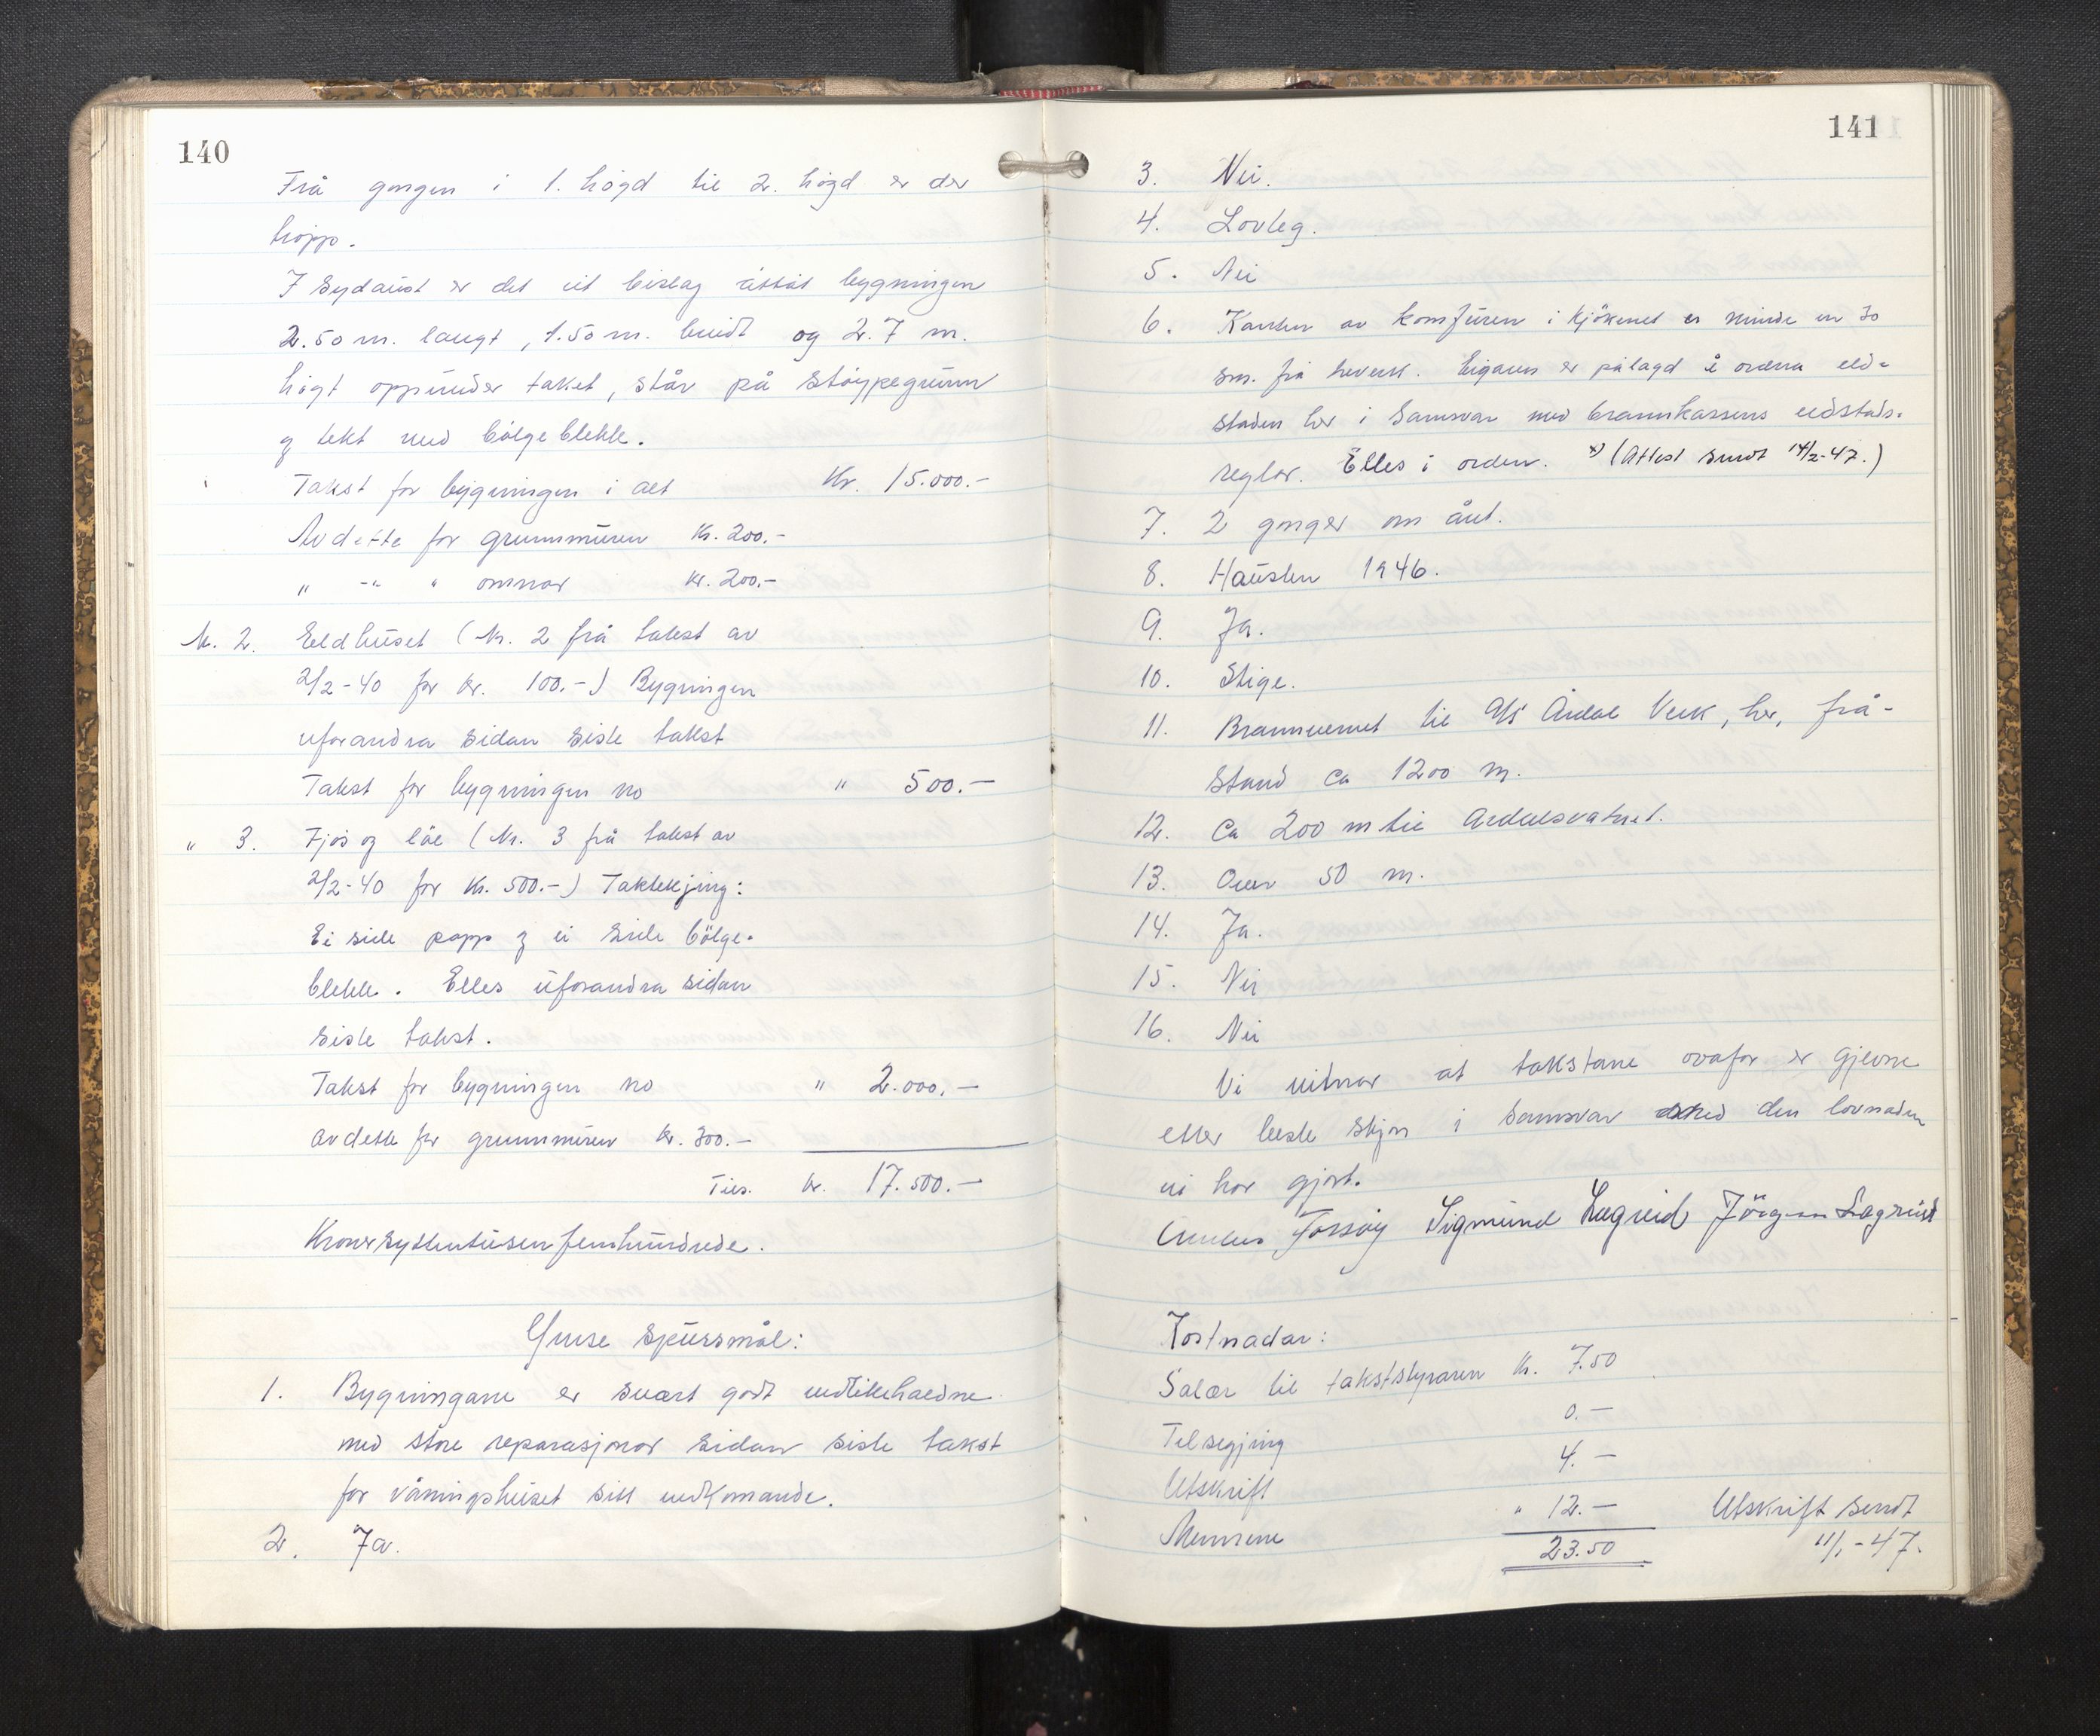 140
Frå gongen i 1. högd til 2. högd er der
tropp.
I Sydaust er det eit bislag attåt bygningen
2.50 m. langt, 1.50 m. breidt og 2.7 m.
högt oppunder taket, står på støypegrunn
og tekt med bölgeblekk.
Takst for bygningen i alt Kr. 15.000.-
Av dette for grunnmuren Kr. 200.-
" -"- " omnar kr. 200.-
Nr. 2. Eeldhuset (Nr. 2 frå takst av
2/2-40 for kr. 100.-) Bygningen
uforandra sidan siste takst
Takst for bygningen no " 500.-
" 3. Fjös og löe (Nr. 3 frå takst av
2/2-40 for Kr. 500.-) Taktekjing:
Ei side papp og ei side bölge-
blekk. Elles uforandra sidan
siste takst.
Takst for bygningen no " 2.000.-
av dette for grunnmuren kr. 300.-
Tils. kr. 17.500.-
Kroner syttentusenfemhundrede.
Ymse spursmål:
1. Bygningane er svært godt vedlikehaldne
med store reparasjonar sidan siste takst
for våningshuset sitt vedkomande.
2. Ja.
141
3. Nei.
4. Lovleg.
5. Nei
6. Kanten av komfuren i kjökenet er minde en 30
sm. frå treverk. Eigaren er pålagd å ordna eld-
staden her i Samsvar med brannkassens eldstads-
reglar. Elles i orden. x) (Attest sendt 14/2-47.)
7. 2 gonger om året.
8. Hausten 1946.
9. Ja.
10. Stige.
11. Brannvernet til A/S Årdal Verk, her, frå-
stand ca 1200 m.
12. Ca 200 m til Årdalsvatnet.
13. Over 50 m.
14. Ja.
15. Nei
16. Nei
Vi vitnar at takstane ovafor er gjevne
etter beste skjøn i samsvar med den lovnaden
vi har gjort.
Torsøy Sigmund Lægreid Jörgen Lægreid
Kostnadar:
Salær til takststyraren Kr. 7.50
Tilsegjing 0.-
Utskrift 4.-
Mennene " 12.-
23.50
Utskrift sendt
11/1-47.